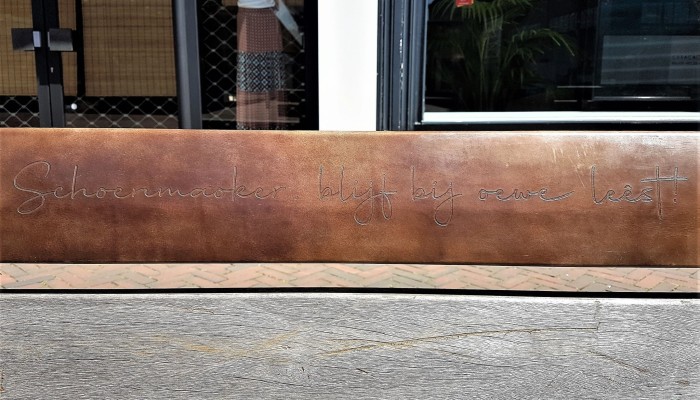 Schoenmaoker blijf bij oewe leêst!